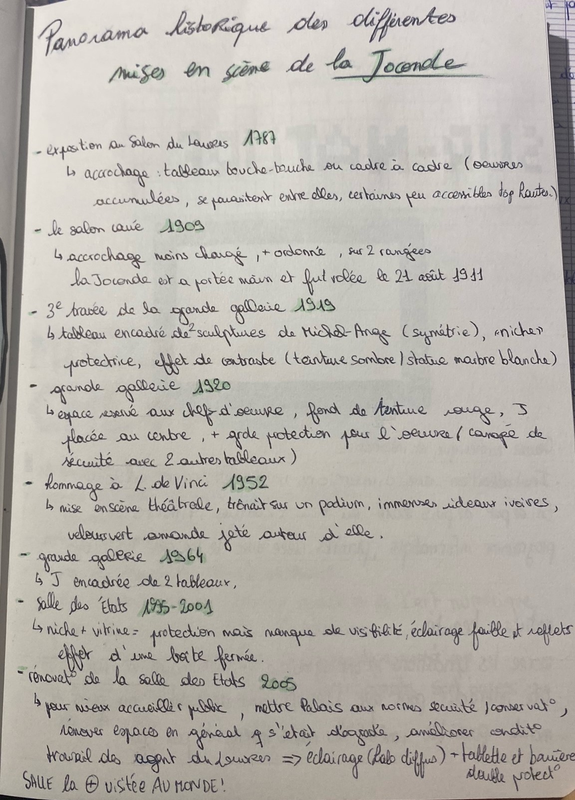 Panorama historique des différentes
mises en scène de la Joconde
- exposition au Salon du Louvres 1787
↳ accrochage : tableaux bouche-touche ou cadre à cadre (oeuvres
accumulées, se parasitent entre elles, certaines peu accessibles trop hautes.)
- le salon carré 1909
↳ accrochage moins chargé, + ordonnée, sur 2 rangées
la Joconde est a portée main et fut volée le 21 août 1911
- 3e travée de la grande gallerie 1919
↳ tableau encadré de 2 sculptures de Michel-Ange (symétrie), niche
protectrice, effet de contraste (teinture sombre / statue marbre blanche)
- grande gallerie 1920
↳ espace reservé aux chefs-d'oeuvre, fond de tenture rouge, J
placée au centre, + grde protection pour l'oeuvre / canapé de
sécurité avec 2 autres tableaux)
- hommage à L. de Vinci 1952
↳ mise en scène théâtrale, trônait sur un podium, immenses rideaux ivoires,
velours vert amande jeté autour d'elle.
- grande gallerie 1964
↳ J encadrée de 2 tableaux.
- Salle des États 1995-2001
↳ niche + vitrine = protection mais manque de visibilité, éclairage faible et reflets
effet d'une boite fermée.
- rénovat° de la salle des Etats 2005
↳ pour mieux accueillir public, mettre Palais aux normes securité / conservat°,
rénover espaces en général q s'était dégradé, améliorer condit°
travail des agent du Louvres => éclairage (halo diffus) + tablette et barrière
double protect°
SALLE la ⊕ visitée AU MONDE !